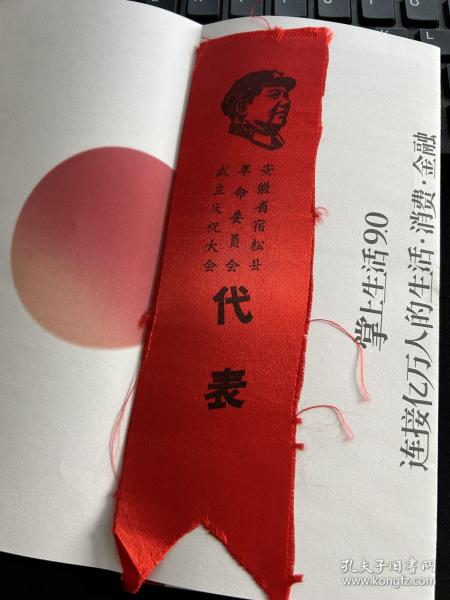 安徽省宿松县
革命委员会
成立庆祝大会
代表
掌上生活9.0
连接亿万人的生活·消费·金融
孔夫子旧书网
www.kongfz.com